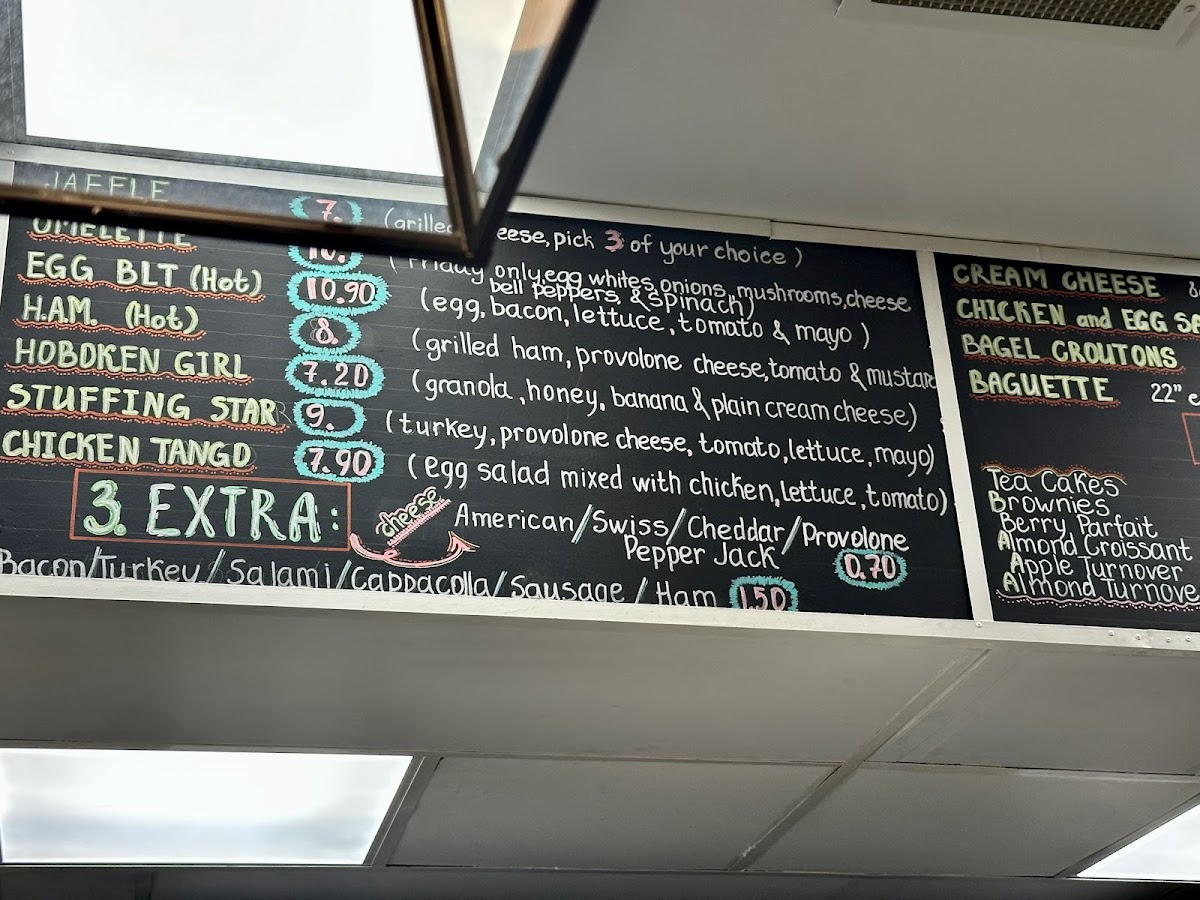 JAFFLE 7. (grilled cheese, pick 3 of your choice)
OMELETTE 10. (Friday only, egg whites, onions, mushrooms, cheese
bell peppers, & spinach)
EGG BLT (Hot) 10.90 (egg, bacon, lettuce, tomato & mayo)
H.A.M. (Hot) 8. (grilled ham, provolone cheese, tomato & mustard
HOBOKEN GIRL 7.20 (granola, honey, banana & plain cream cheese)
STUFFING STAR 9. (turkey, provolone cheese, tomato, lettuce, mayo)
CHICKEN TANGO 7.90 (egg salad mixed with chicken, lettuce, tomato)
3. EXTRA: cheese American/Swiss/Cheddar/Provolone
Pepper Jack 0.70
Bacon/Turkey/Salami/Cappacolla/Sausage/Ham 1.50
CREAM CHEESE
CHICKEN and EGG
BAGEL CROUTONS
BAGUETTE 22"
Tea Cakes
Brownies
Berry Parfait
Almond Croissant
Apple Turnover
Almond Turnove